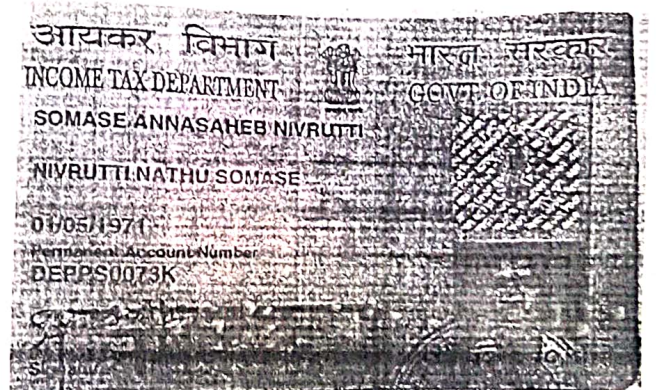 आयकर विभाग
भारत सरकार
INCOME TAX DEPARTMENT
GOVT. OF INDIA
SOMASE ANNASAHEB NIVRUTTI
NIVRUTTI NATHU SOMASE
01/05/1971
Permanent Account Number
DEPPS0073K